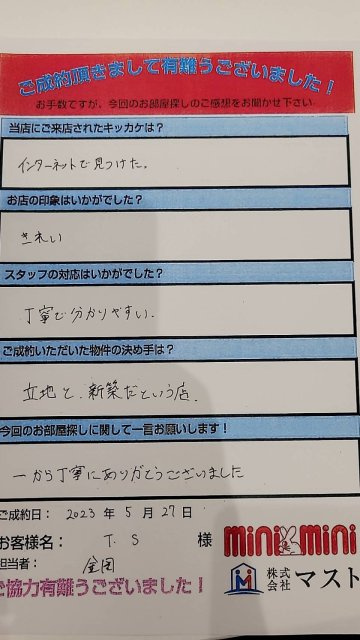 ご成約頂きまして有難うございました!
お手数ですが、今回のお部屋探しのご感想をお聞かせ下さい
当店にご来店されたキッカケは?
インターネットで見つけた。
お店の印象はいかがでした?
きれい
スタッフの対応はいかがでした?
丁寧で分かりやすい。
ご成約いただいた物件の決め手は?
立地と、新築だという店。
今回のお部屋探しに関して一言お願いします!
一から丁寧にありがとうございました
ご成約日: 2023 年 5 月 27 日
お客様名: T. S 様
mini mini
担当者:
株式会社 マスト
ご協力有難うございました!